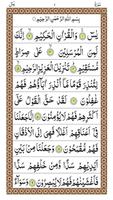 بِسْمِ اللهِ الرَّحْمٰنِ الرَّحِيْمِ
يٰسٓ وَالْقُرْاٰنِ الْحَكِيْمِ اِنَّكَ
لَمِنَ الْمُرْسَلِيْنَ عَلٰى صِرَاطٍ
مُّسْتَقِيْمٍ تَنْزِيْلَ الْعَزِيْزِ الرَّحِيْمِ
لِتُنْذِرَ قَوْمًا مَّآ اُنْذِرَ اٰبَآؤُهُمْ فَهُمْ
غٰفِلُوْنَ لَقَدْ حَقَّ الْقَوْلُ عَلٰٓى
اَكْثَرِهِمْ فَهُمْ لَا يُؤْمِنُوْنَ اِنَّا جَعَلْنَا
فِيْٓ اَعْنَاقِهِمْ اَغْلٰلًا فَهِيَ اِلَى الْاَذْقَانِ
فَهُمْ مُّقْمَحُوْنَ وَجَعَلْنَا مِنْۢ بَيْنِ
اَيْدِيْهِمْ سَدًّا وَّمِنْ خَلْفِهِمْ سَدًّا
فَاَغْشَيْنٰهُمْ فَهُمْ لَا يُبْصِرُوْنَ وَسَوَآءٌ